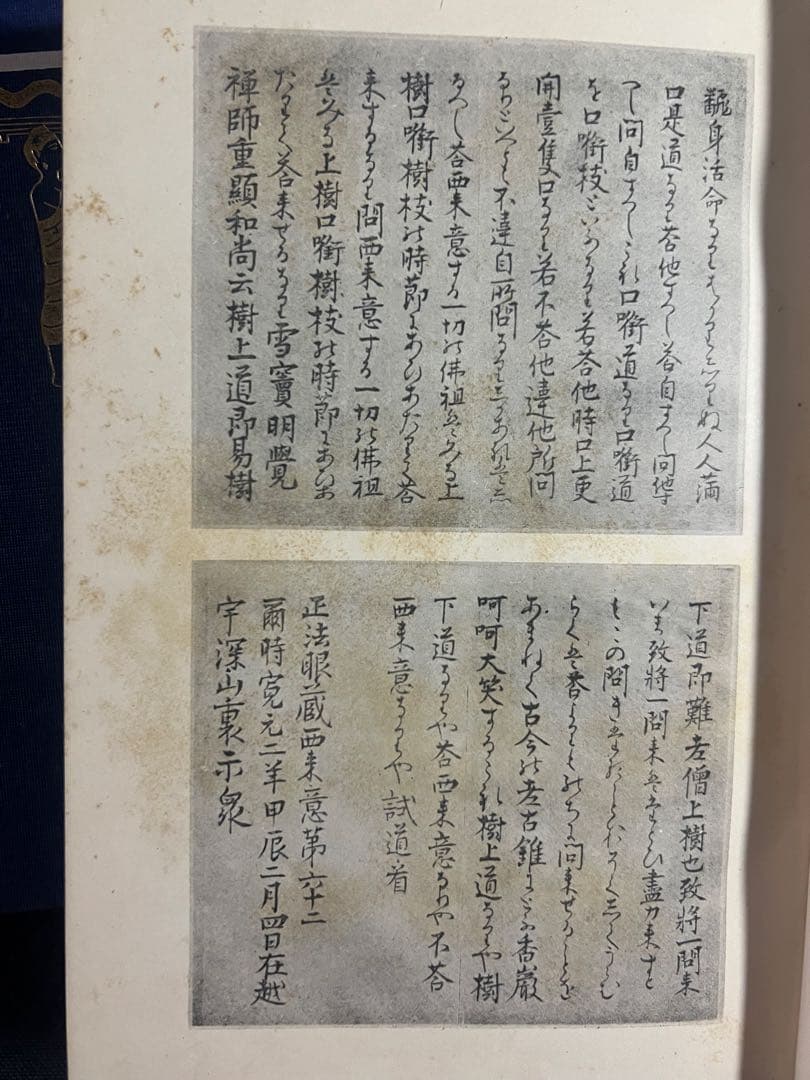 飜身活命なりはかりしりぬ人人滿
口是道なり答他すへし答自すへし問他す
へし問自すへしこれ口銜道なり口銜道
を口銜枝といふなり若答他時口上更
開壹隻口なり若不答他違他所問
なりといへとも不違自所問なりしかあれはし
るへし答西来意する一切の佛祖はみな上
樹口銜樹枝の時節にあひあたりて答
来するなり問西来意する一切の佛祖
はみな上樹口銜樹枝の時節にあひあ
たりて答来せるなり雪竇明覺
禪師重顯和尚云樹上道即易樹
下道即難老僧上樹也致將一問来
いま致將一問来はたとひ盡力来すと
もこの問きたることおそくしてうらむ
らくは答よりものちに問来せることを
あまねく古今の老古錐にとふ香嚴
呵呵大笑するこれ樹上道なりや樹
下道なりや答西来意なりや不答
西来意なりや試道看
正法眼藏西来意第六十二
爾時寛元二年甲辰二月四日在越
宇深山裏示衆